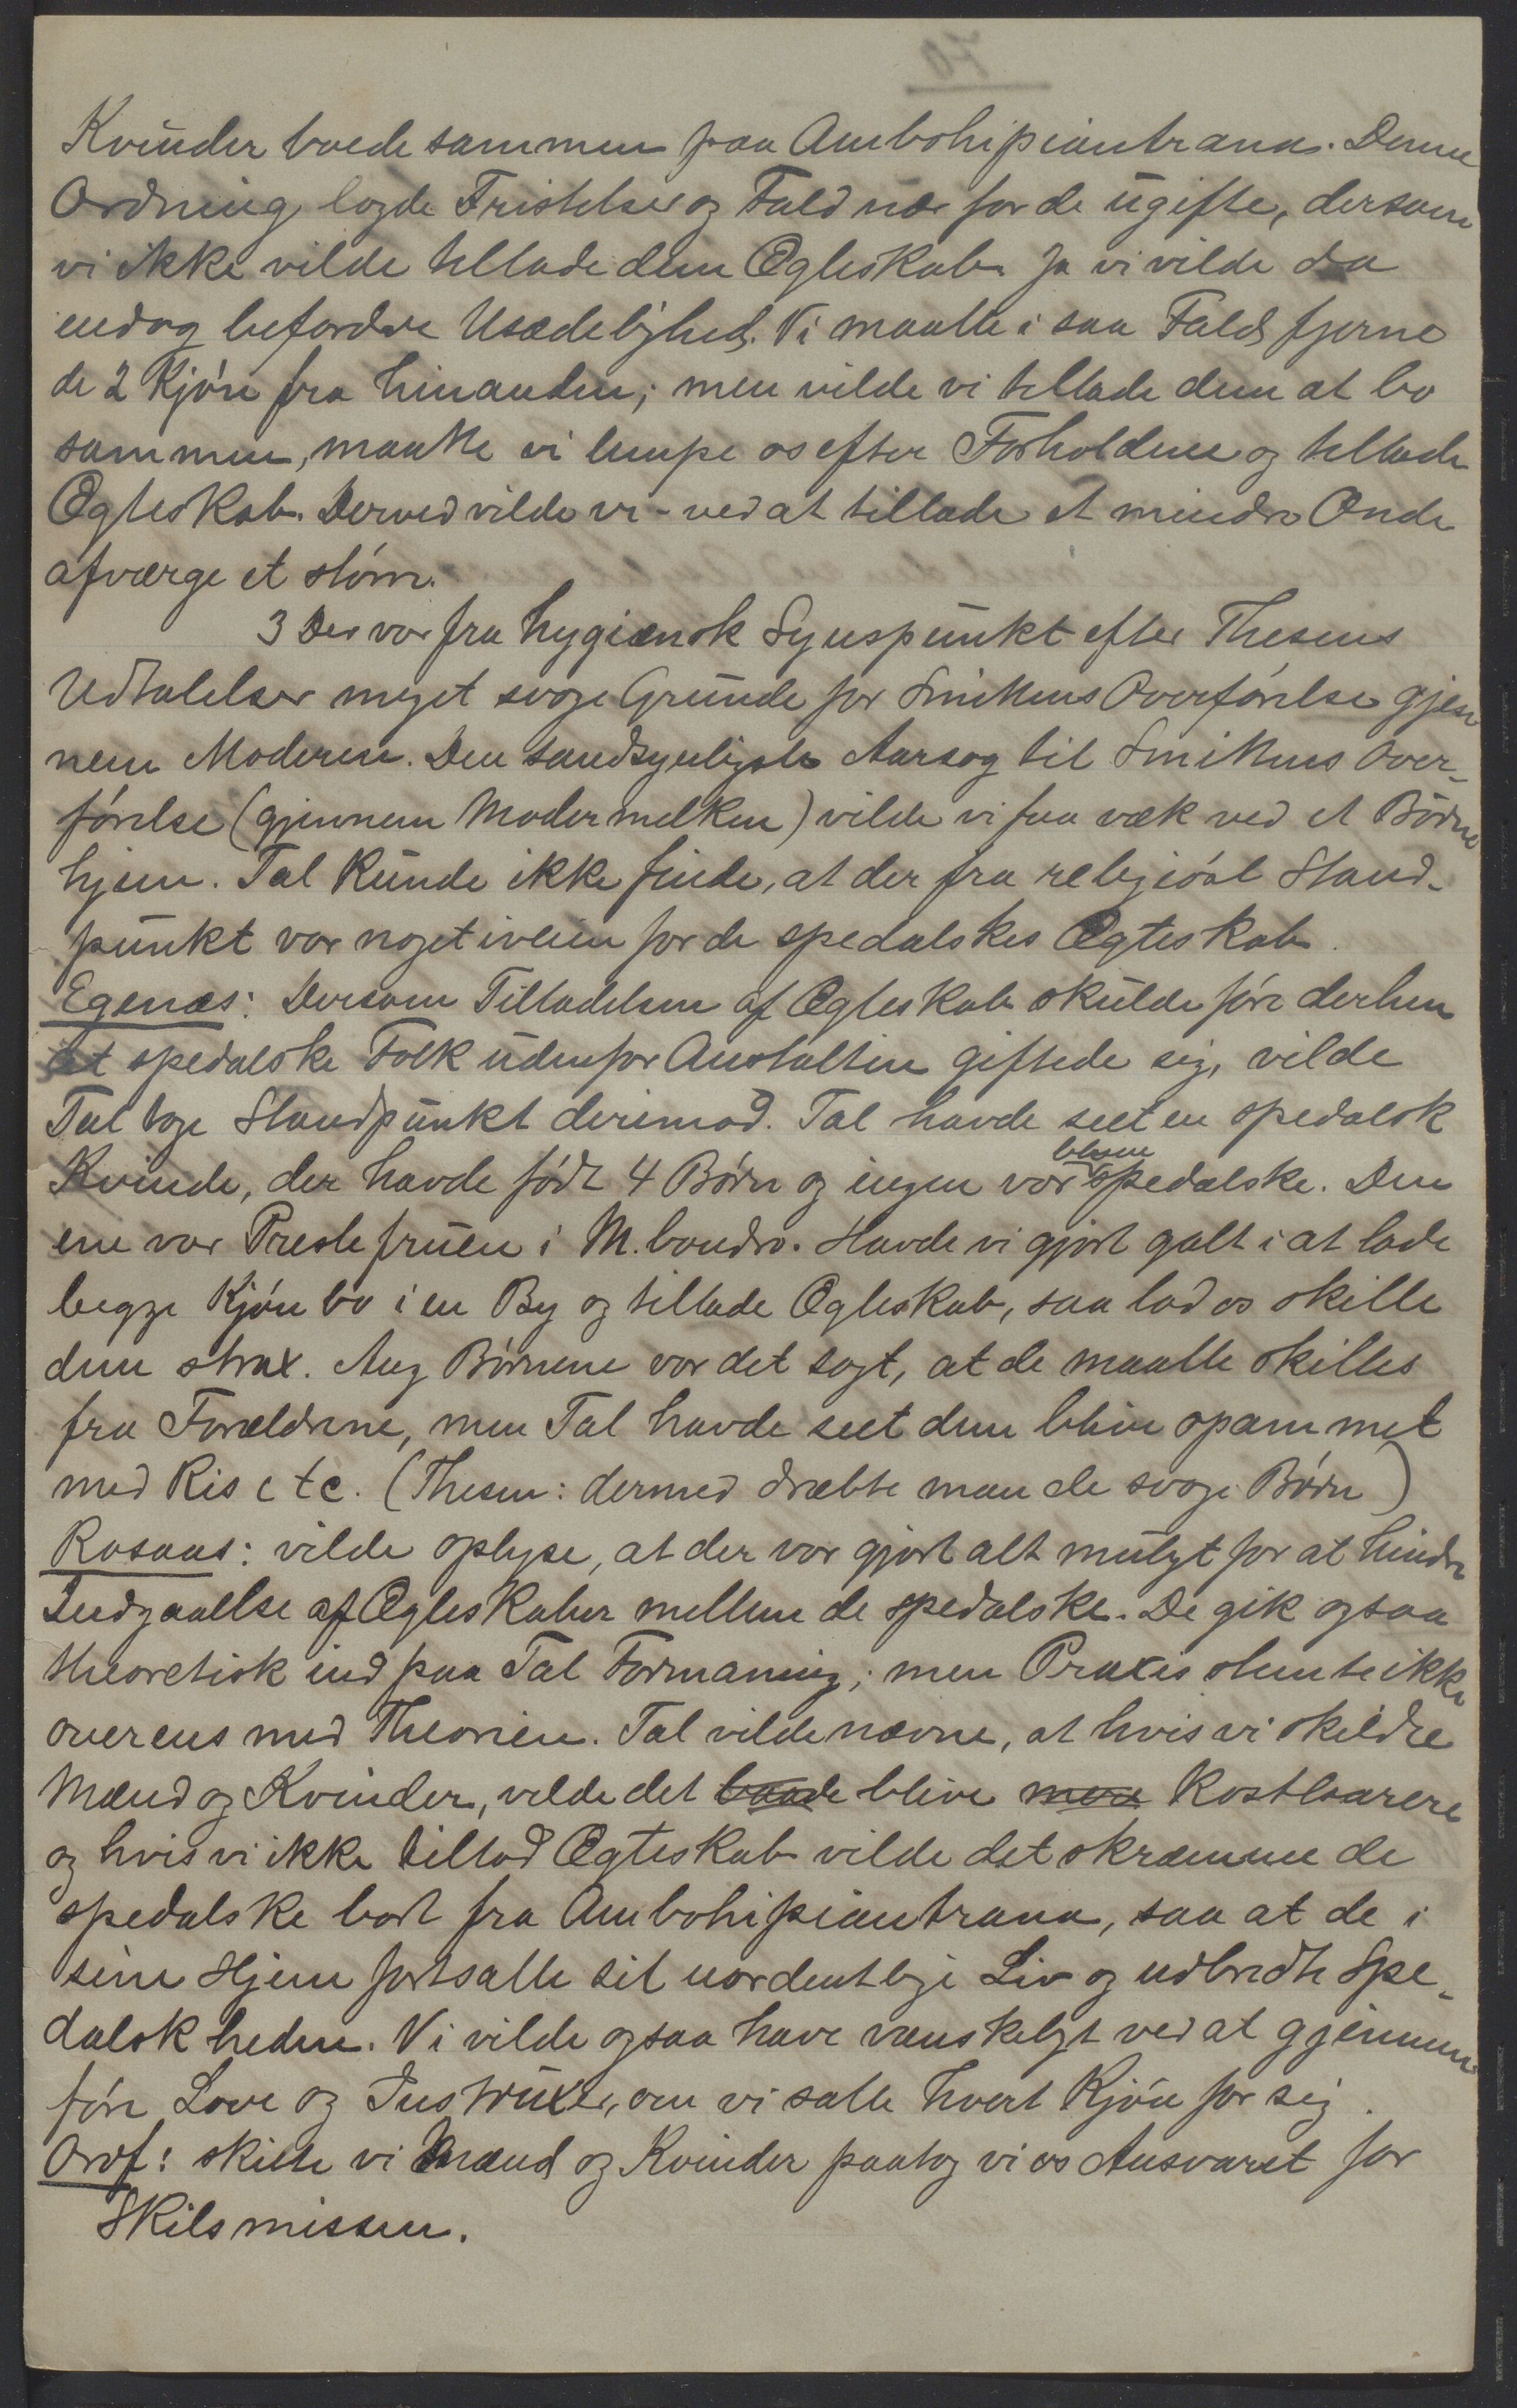 Kvinder boede sammen paa Ambohipiantrana. Denne
Ordning lagde Fristelser og Fald nær for de ugifte, dersom
vi ikke vilde tillade dem Ægteskab. Ja vi vilde da
endog befordre Usædelighed. Vi maatte i saa Fald fjerne
de 2 Kjøn fra hinanden; men vilde vi tillade dem at bo
sammen, maatte vi lempe os efter Forholdene og tillade
Ægteskab. Derved vilde vi - ved at tillade et mindre Onde
afværge et større.
3 Der var fra hygiænisk Synspunkt efter Thesens
Udtalelser meget svage Grunde for Smittens Overførelse gjen
nem Moderen. Den sandsynligste Aarsag til Smittens Over-
førelse (gjennem Modermelken) vilde vi faa væk ved et Børne
hjem. Tal kunde ikke finde, at der fra religiøst Stand-
punkt var noget iveien for de spedalskes Ægteskab.
Egenæs: Dersom Tilladelsen af Ægteskab skulde føre derhen
at spedalske Folk udenfor Anstalten giftede sig, vilde
Tal tage Standpunkt derimod. Tal havde seet en spedalsk
Kvinde, der havde født 4 Børn og ingen var blevne spedalske. Den
ene var Prestefruen i M.bondro. Havde vi gjort galt i at lade
begge Kjøn bo i en By og tillade Ægteskab, saa lad os skille
dem strax. Ang Børnene var det sagt, at de maatte skilles
fra Forældrene, men Tal havde seet dem blive opammet
med Ris etc. (Thesen: dermed dræbte man de svage Børn)
Rosaas: vilde oplyse, at der var gjort alt muligt for at hindre
Indgaaelse af Ægteskaber mellem de spedalske. De gik ogsaa
theoretisk ind paa Tal Formaning; men Praxis stemte ikke
overens med Theorien. Tal vilde nævne, at hvis vi skildte
Mænd og Kvinder, vilde det baade blive mere kostbarere
og hvis vi ikke tillod Ægteskab vilde det skræmme de
spedalske bort fra Ambohipiantrana, saa at de i
sine Hjem fortsatte sit uordentlige Liv og udbredte Spe-
dalskheden. Vi vilde ogsaa have vanskeligt ved at gjennem
føre Love og Instruxer, om vi satte hvert Kjøn for sig.
Ordf: skilte vi Mænd og Kvinder paatog vi os Ansvaret for
Skilsmissen.